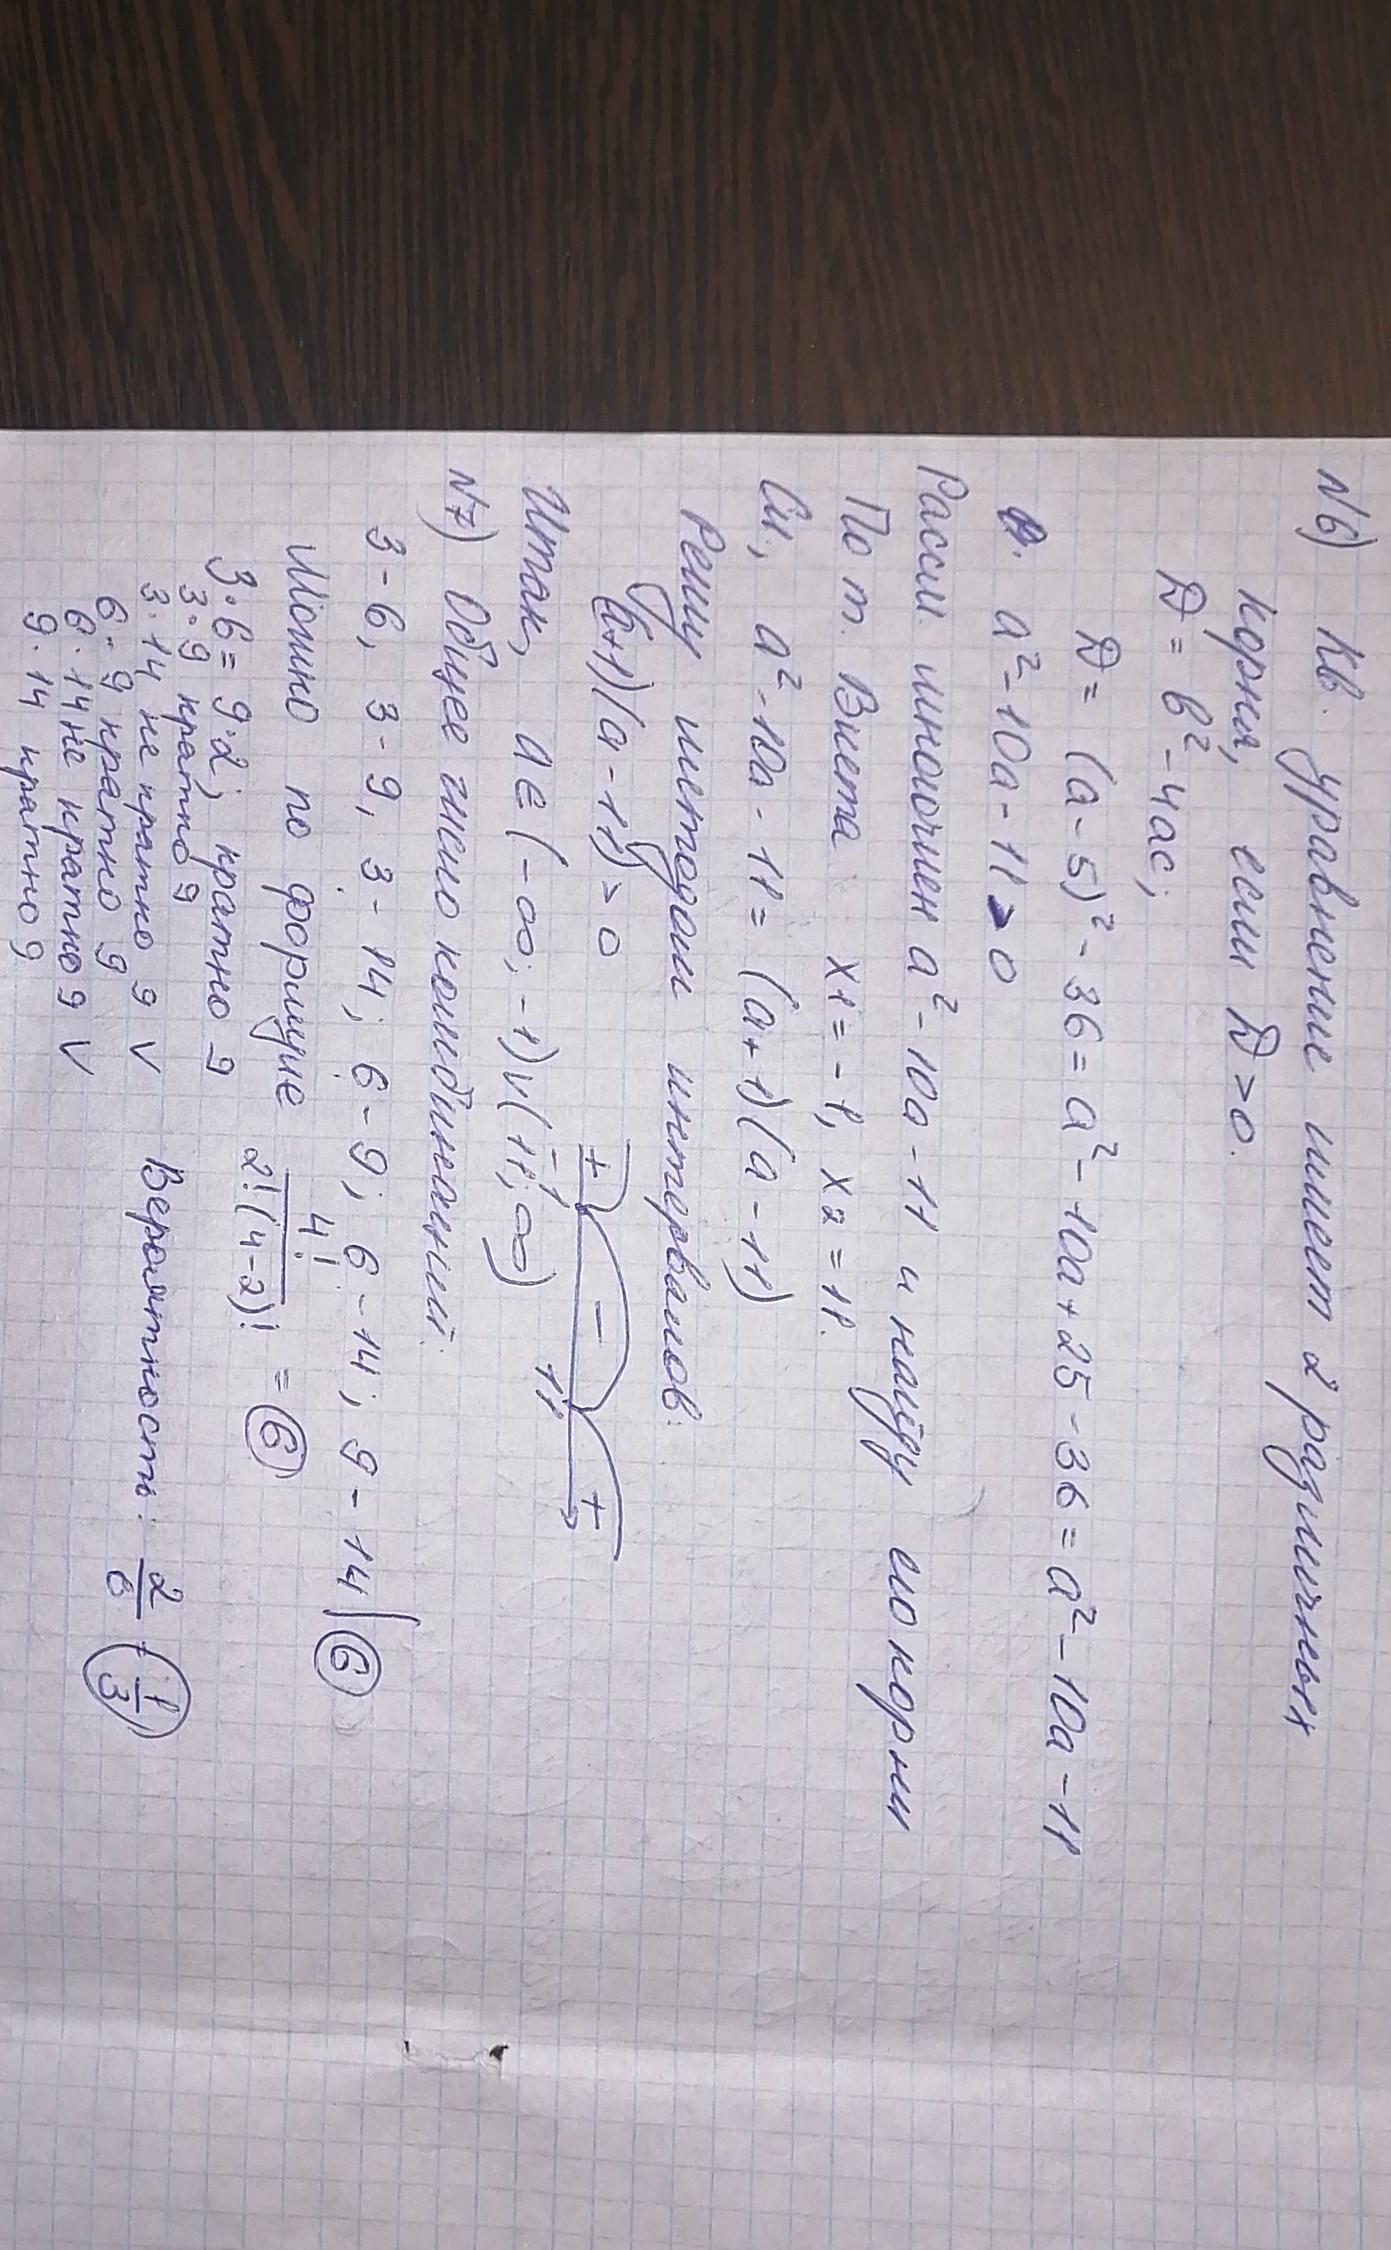 N6) Кв. уравнение имеет 2 различных
корня, если D > 0.
D = b² - 4ac;
D = (a - 5)² - 36 = a² - 10a + 25 - 36 = a² - 10a - 11
a² - 10a - 11 > 0
Рассм. многочлен a² - 10a - 11 и найду его корни
По т. Виета x1 = -1, x2 = 11.
Сл, a² - 10a - 11 = (a+1)(a - 11)
Решу методом интервалов:
(a+1)(a - 11) > 0
+ - +
-1 11
Итак, a ∈ (-∞; -1) ∪ (11; ∞)
N7) Общее число комбинаций:
3 - 6, 3 - 9, 3 - 14; 6 - 9; 6 - 14; 9 - 14 | 6
Можно по формуле 4!/2!(4-2)! = 6
3·6 = 9·2, кратно 9
3·9 кратно 9
3·14 не кратно 9 V
6·9 кратно 9
6·14 не кратно 9 V
9·14 кратно 9
Вероятность: 2/6 = 1/3